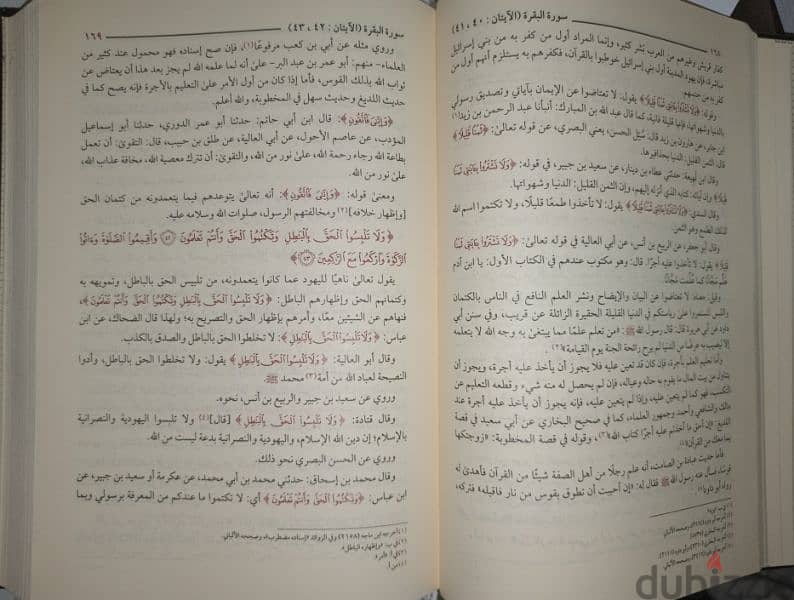 ١٦٨
سورة البقرة (الآيتان : ٤٠ ، ٤١)
كفار قريش وغيرهم من العرب بشر كثير، وإنما المراد أول من كفر به من بني إسرائيل
مباشرة، فإن يهود المدينة أول بني إسرائيل خوطبوا بالقرآن، فكفرهم به يستلزم أنهم أول من
كفر به من جنسهم.
وقوله: ﴿وَلَا تَشْتَرُوا بِآيَاتِي ثَمَنًا قَلِيلًا﴾ يقول: لا تعتاضوا عن الإيمان بآياتي وتصديق رسولي
بالدنيا وشهواتها، فإنها قليلة فانية، كما قال عبد الله بن المبارك: أنبأنا عبد الرحمن بن زيد
ابن جابر، عن هارون بن زيد قال: سُئِل الحسن، يعني البصري، عن قوله تعالى: ﴿ثَمَنًا قَلِيلًا﴾
قال: الثمن القليل: الدنيا بحذافيرها.
وقال ابن لهيعة: حدثني عطاء بن دينار، عن سعيد بن جبير، في قوله: ﴿وَلَا تَشْتَرُوا بِآيَاتِي ثَمَنًا
قَلِيلًا﴾ وإن آياته: كتابه الذي أنزله إليهم، وإن الثمن القليل: الدنيا وشهواتها.
وقال السدي: ﴿وَلَا تَشْتَرُوا بِآيَاتِي ثَمَنًا قَلِيلًا﴾ يقول: لا تأخذوا طمعًا قليلًا، ولا تكتموا اسم الله
لذلك الطمع وهو الثمن.
وقال أبو جعفر، عن الربيع بن أنس، عن أبي العالية في قوله تعالى: ﴿وَلَا تَشْتَرُوا بِآيَاتِي ثَمَنًا
قَلِيلًا﴾ يقول: لا تأخذوا عليه أجرًا. قال: وهو مكتوب عندهم في الكتاب الأول: يا ابن آدم
عَلِّم مَجَّانًا كما عُلِّمت مَجَّانًا.
وقيل: معناه لا تعتاضوا عن البيان والإيضاح ونشر العلم النافع في الناس بالكتمان
واللبس لتستمروا على رياستكم في الدنيا القليلة الحقيرة الزائلة عن قريب، وفي سنن أبي
داود عن أبي هريرة قال: قال رسول الله ﷺ: «من تعلم علمًا مما يبتغى به وجه الله لا يتعلمه
إلا ليصيب به عرضًا من الدنيا لم يرح رائحة الجنة يوم القيامة»
وأما تعليم العلم بأجرة، فإن كان قد تعين عليه فلا يجوز أن يأخذ عليه أجرة، ويجوز أن
يتناول من بيت المال ما يقوم به حاله وعياله، فإن لم يحصل له منه شيء وقطعه التعليم عن
التكسب، فهو كما لم يتعين عليه، وإذا لم يتعين عليه، فإنه يجوز أن يأخذ عليه أجرة عند
مالك والشافعي وأحمد وجمهور العلماء، كما في صحيح البخاري عن أبي سعيد في قصة
اللديغ: «إن أحق ما أخذتم عليه أجرًا كتاب الله»، وقوله في قصة المخطوبة: «زوجتكها
بما معك من القرآن»
فأما حديث عبادة بن الصامت، أنه علم رجلًا من أهل الصفة شيئًا من القرآن فأهدى له
قوسًا، فسأل عنه رسول الله ﷺ فقال له: «إن أحببت أن تطوق بقوس من نار فاقبله» فتركه،
رواه أبو داود
سورة البقرة (الآيتان : ٤٢ ، ٤٣)
١٦٩
وروي مثله عن أبي بن كعب مرفوعًا(١)، فإن صح إسناده فهو محمول عند كثير من
العلماء- منهم: أبو عمر بن عبد البر- على أنه لما علمه الله لم يجز بعد هذا أن يعتاض عن
ثواب الله بذلك القوس، فأما إذا كان من أول الأمر على التعليم بالأجرة فإنه يصح كما في
حديث اللديغ وحديث سهل في المخطوبة، والله أعلم.
﴿وَإِيَّايَ فَاتَّقُونِ﴾: قال ابن أبي حاتم: حدثنا أبو عمر الدوري، حدثنا أبو إسماعيل
المؤدب، عن عاصم الأحول، عن أبي العالية، عن طلق بن حبيب، قال: التقوى: أن تعمل
بطاعة الله رجاء رحمة الله، على نور من الله، والتقوى: أن تترك معصية الله، مخافة عذاب الله،
على نور من الله.
ومعنى قوله: ﴿وَإِيَّايَ فَاتَّقُونِ﴾: أنه تعالى يتوعدهم فيما يتعمدونه من كتمان الحق
[وإظهار خلافه](٢) ومخالفتهم الرسول، صلوات الله وسلامه عليه.
﴿وَلَا تَلْبِسُوا الْحَقَّ بِالْبَاطِلِ وَتَكْتُمُوا الْحَقَّ وَأَنتُمْ تَعْلَمُونَ ٤٢ وَأَقِيمُوا الصَّلَاةَ وَآتُوا
الزَّكَاةَ وَارْكَعُوا مَعَ الرَّاكِعِينَ ٤٣﴾
يقول تعالى ناهيًا لليهود عما كانوا يتعمدونه، من تلبيس الحق بالباطل، وتمويهه به
وكتمانهم الحق وإظهارهم الباطل: ﴿وَلَا تَلْبِسُوا الْحَقَّ بِالْبَاطِلِ وَتَكْتُمُوا الْحَقَّ وَأَنتُمْ تَعْلَمُونَ﴾،
فنهاهم عن الشيئين معًا، وأمرهم بإظهار الحق والتصريح به؛ ولهذا قال الضحاك، عن ابن
عباس: ﴿وَلَا تَلْبِسُوا الْحَقَّ بِالْبَاطِلِ﴾: لا تخلطوا الحق بالباطل والصدق بالكذب.
وقال أبو العالية: ﴿وَلَا تَلْبِسُوا الْحَقَّ بِالْبَاطِلِ﴾ يقول: ولا تخلطوا الحق بالباطل، وأدوا
النصيحة لعباد الله من أمة(٣) محمد ﷺ.
وروي عن سعيد بن جبير والربيع بن أنس، نحوه.
وقال قتادة: ﴿وَلَا تَلْبِسُوا الْحَقَّ بِالْبَاطِلِ﴾ [قال](٤) ولا تلبسوا اليهودية والنصرانية
بالإسلام؛ إن دين الله الإسلام، واليهودية والنصرانية بدعة ليست من الله.
وروي عن الحسن البصري نحو ذلك.
وقال محمد بن إسحاق: حدثني محمد بن أبي محمد، عن عكرمة أو سعيد بن جبير، عن
ابن عباس: ﴿وَتَكْتُمُوا الْحَقَّ وَأَنتُمْ تَعْلَمُونَ﴾ أي: لا تكتموا ما عندكم من المعرفة برسولي وبما
(١) أخرجه ابن ماجه (٢١٥٨) وفي الزوائد «إسناده مضطرب»، وصححه الألباني.
(٢) في ب: «وإظهاره الباطل».
dubizzle